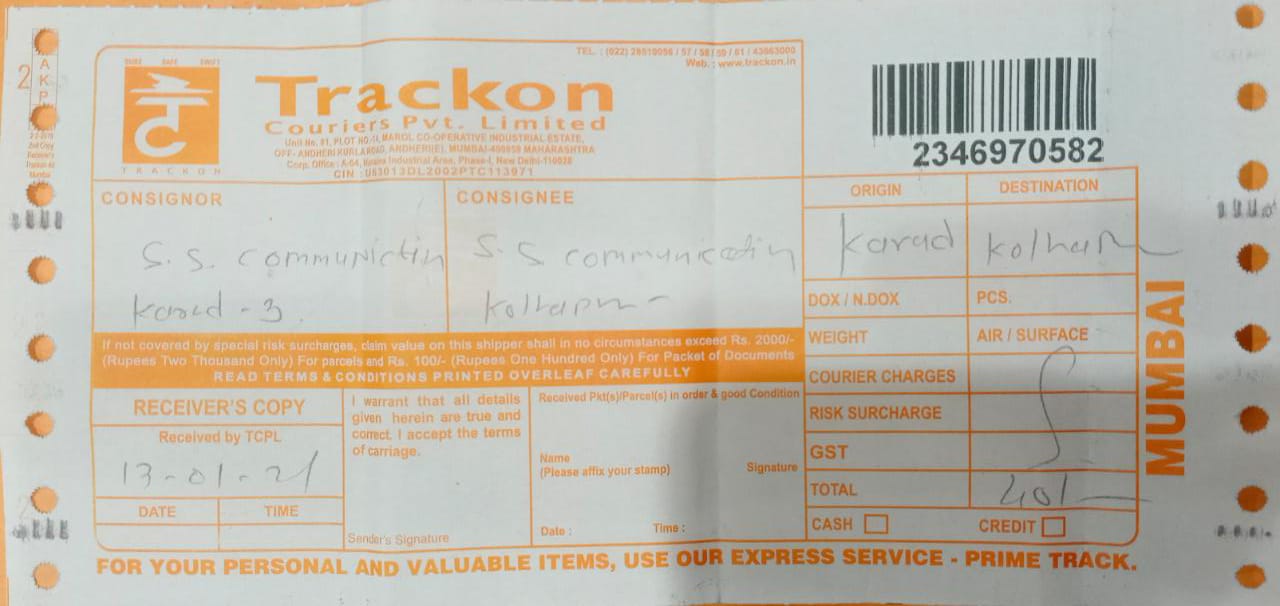 TEL. : (022) 28510056 / 57 / 58 / 59 / 61 / 43663000
Web. : www.trackon.in
SURE SAFE SWIFT
TRACKON
Trackon
Couriers Pvt. Limited
Unit No. 81, PLOT NO-II, MAROL CO-OPERATIVE INDUSTRIAL ESTATE,
OFF- ANDHERI KURLA ROAD, ANDHERI(E), MUMBAI-400059 MAHARASHTRA
Corp. Office : A-64, Naraina Industrial Area, Phase-I, New Delhi-110028
CIN : U63013DL2002PTC113971
2346970582
CONSIGNOR
S. S. communictin
Karad - 3.
CONSIGNEE
S. S. communicatin
Kolhapur
ORIGIN
Karad
DESTINATION
Kolhapur
DOX / N.DOX
PCS.
WEIGHT
AIR / SURFACE
COURIER CHARGES
RISK SURCHARGE
GST
TOTAL
40/-
CASH
CREDIT
MUMBAI
If not covered by special risk surcharges, claim value on this shipper shall in no circumstances exceed Rs. 2000/-
(Rupees Two Thousand Only) For parcels and Rs. 100/- (Rupees One Hundred Only) For Packet of Documents
READ TERMS & CONDITIONS PRINTED OVERLEAF CAREFULLY
RECEIVER'S COPY
Received by TCPL
13-01-21
DATE
TIME
I warrant that all details
given herein are true and
correct. I accept the terms
of carriage.
Sender's Signature
Received Pkt(s)/Parcel(s) in order & good Condition
Name
(Please affix your stamp)
Signature
Date :
Time :
FOR YOUR PERSONAL AND VALUABLE ITEMS, USE OUR EXPRESS SERVICE - PRIME TRACK.